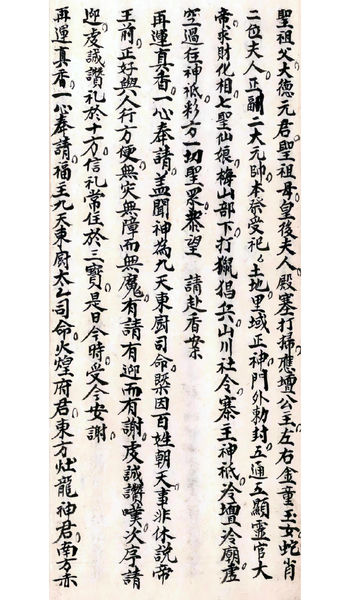 聖祖父大德元君聖祖母皇後夫人殿塞打掃應壇公主左右金童玉女蛇肖
二位夫人正副二大元帥本祭受祀土地里域正神門外勅封五通五顯靈官大
帝求財化相七聖仙娘梅山部下打獵猖兵山川社令寨主神祇冷壇冷廟虛
空過往神祇彩方一切聖眾黎望請赴香案
再運真香一心奉請蓋聞神為九天東厨司命槩因百姓朝天事非休說帝
王前正好與人行方便無灾無障而無魔有請有迎而有謝虔誠讚嘆次序請
迎虔誠讚礼於十方信礼常住於三寶是日今時受今安謝
再運真香一心奉請福主九天東厨太乙司命火煌府君東方灶龍神君南方赤